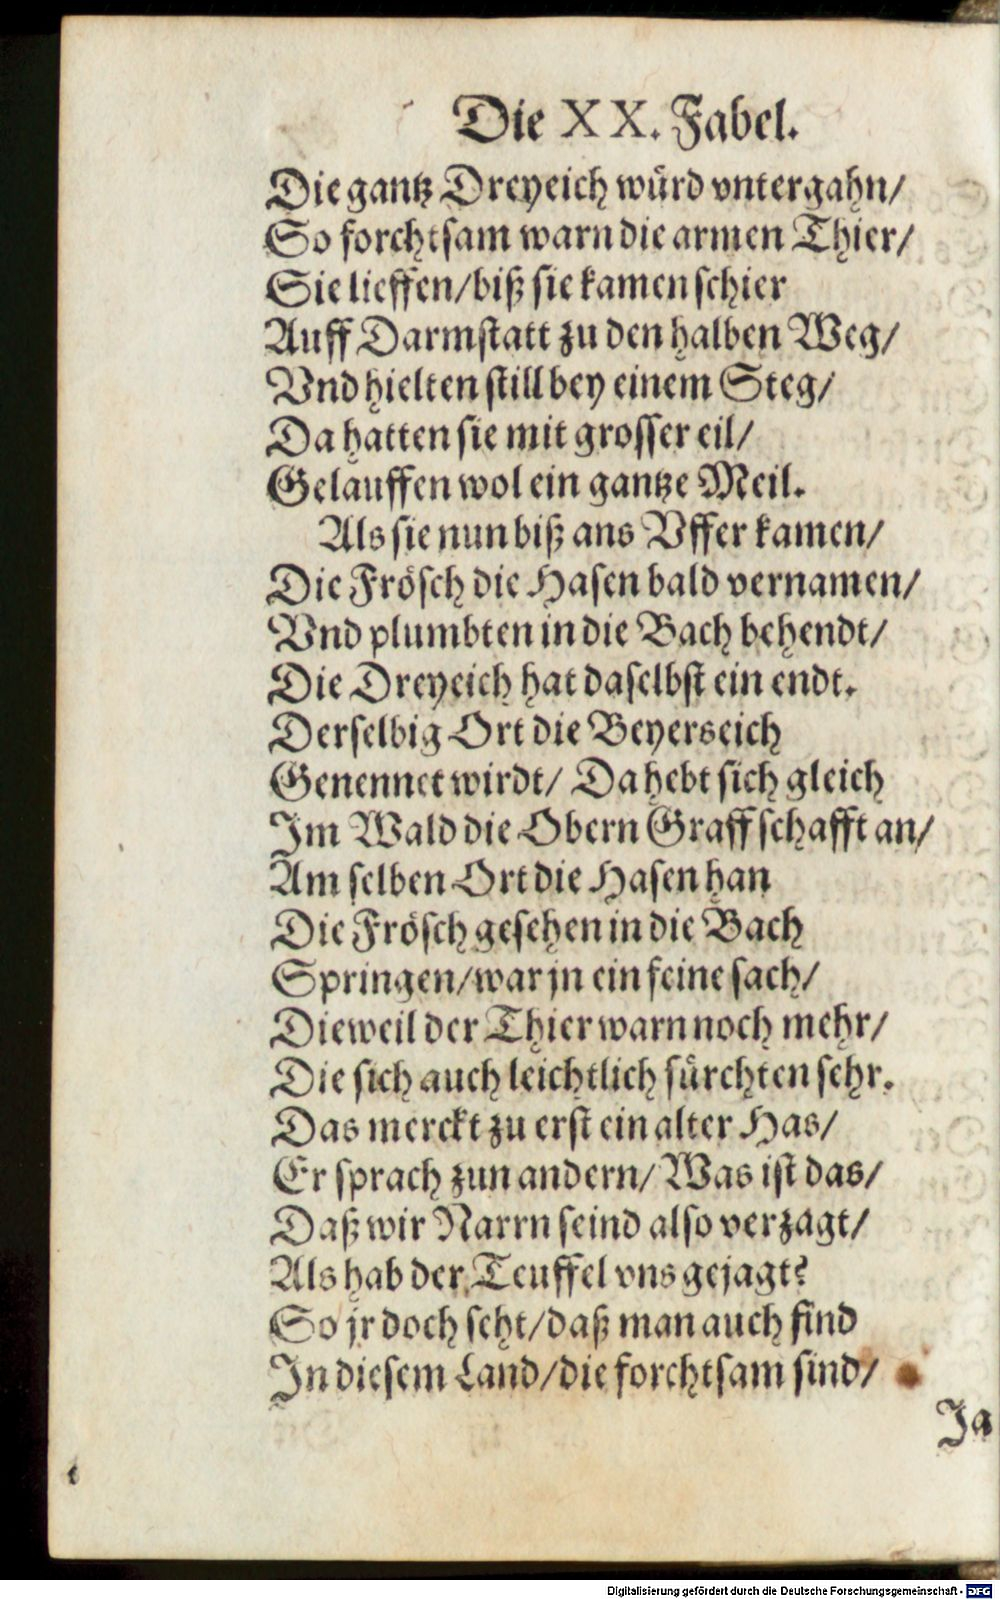 Die XX. Fabel.
Die gantz Dreyeich würd vntergahn/
So forchtsam warn die armen Thier/
Sie lieffen/biß sie kamen schier
Auff Darmstatt zu den halben Weg/
Vnd hielten still bey einem Steg/
Da hatten sie mit grosser eil/
Gelauffen wol ein gantze Meil.
Als sie nun biß ans Vffer kamen/
Die Frösch die Hasen bald vernamen/
Vnd plumbten in die Bach behendt/
Die Dreyeich hat daselbst ein endt.
Derselbig Ort die Beyerseich
Genennet wirdt/ Da hebt sich gleich
Im Wald die Obern Graffschafft an/
Am selben Ort die Hasen han
Die Frösch gesehen in die Bach
Springen/war jn ein feine sach/
Dieweil der Thier warn noch mehr/
Die sich auch leichtlich fürchten sehr.
Das merckt zu erst ein alter Has/
Er sprach zun andern/ Was ist das/
Daß wir Narrn seind also verzagt/
Als hab der Teuffel vns gejagt?
So jr doch seht/daß man auch find
In diesem Land/die forchtsam sind/
Ja
Digitalisierung gefördert durch die Deutsche Forschungsgemeinschaft - DFG